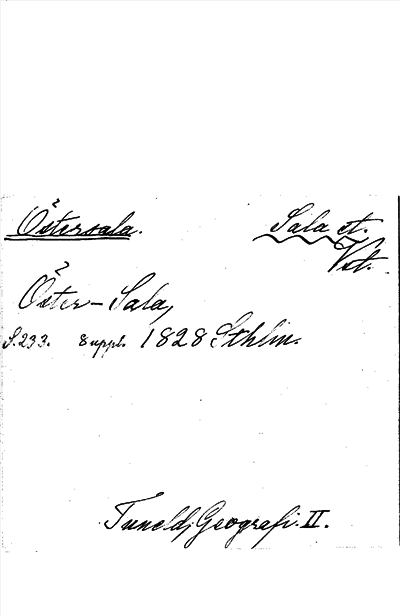 Östersala. Sala st.
Vst.
Öster-Sala,
S. 233. 8 uppl. 1828 Sthlm.
Tuneld, Geografi. II.